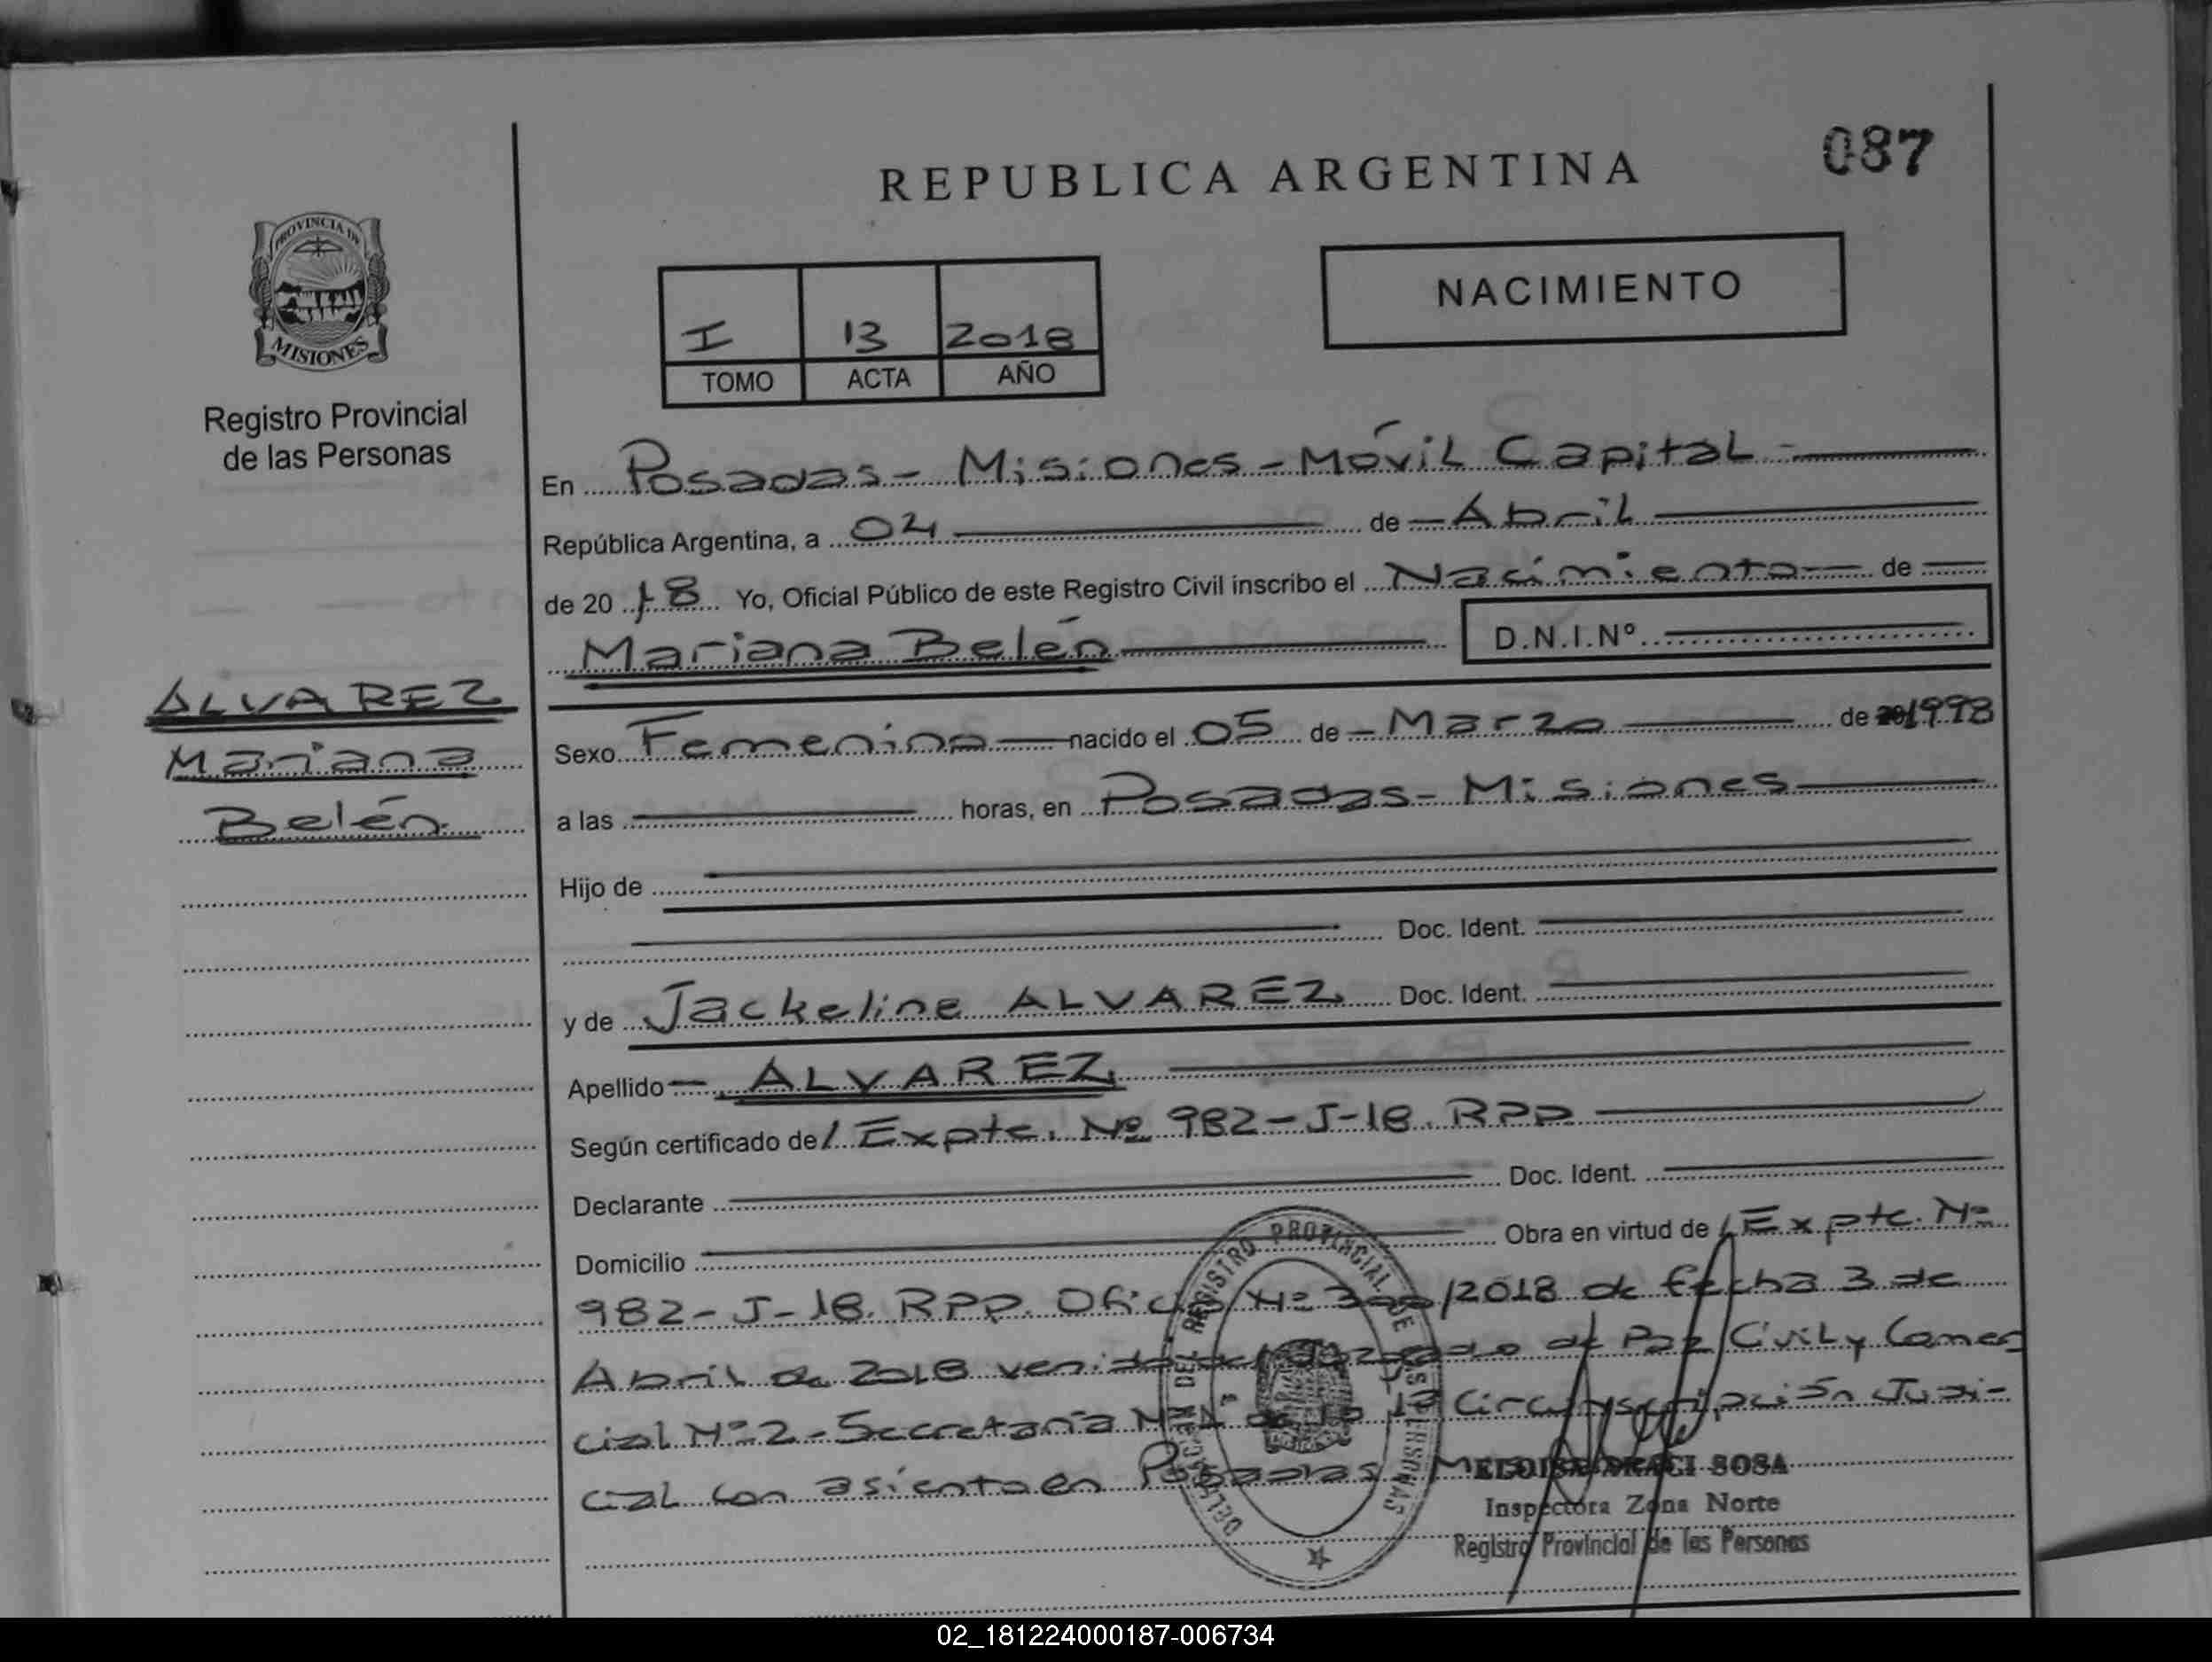 087
REPUBLICA ARGENTINA
PROVINCIA DE
MISIONES
Registro Provincial
de las Personas
NACIMIENTO
I 13 2018
TOMO ACTA AÑO
En Posadas - Misiones - Móvil Capital
República Argentina, a 04 de Abril
de 2018 Yo, Oficial Público de este Registro Civil inscribo el Nacimiento de
Mariana Belén D.N.I.Nº
ALVAREZ
Mariana
Belén
Sexo Femenino nacido el 05 de Marzo de 1998
a las horas, en Posadas - Misiones
Hijo de
Doc. Ident.
y de Jackeline ALVAREZ Doc. Ident.
Apellido ALVAREZ
Según certificado de / Expte. Nº 982-J-18. RPP.
Declarante Doc. Ident.
Domicilio Obra en virtud de / Expte. Nº
982-J-18. RPP. Oficio Nº /2018 de fecha 3 de
Abril de 2018 venido del Juzgado de Paz Civil y Comer
cial Nº 2 - Secretaría Nº de la 1ª Circunscripción Judi-
cial con asiento en Posadas
DELEGACION DEL REGISTRO PROVINCIAL DE LAS PERSONAS
SOSA
Inspectora Zona Norte
Registro Provincial de las Personas
02_181224000187-006734